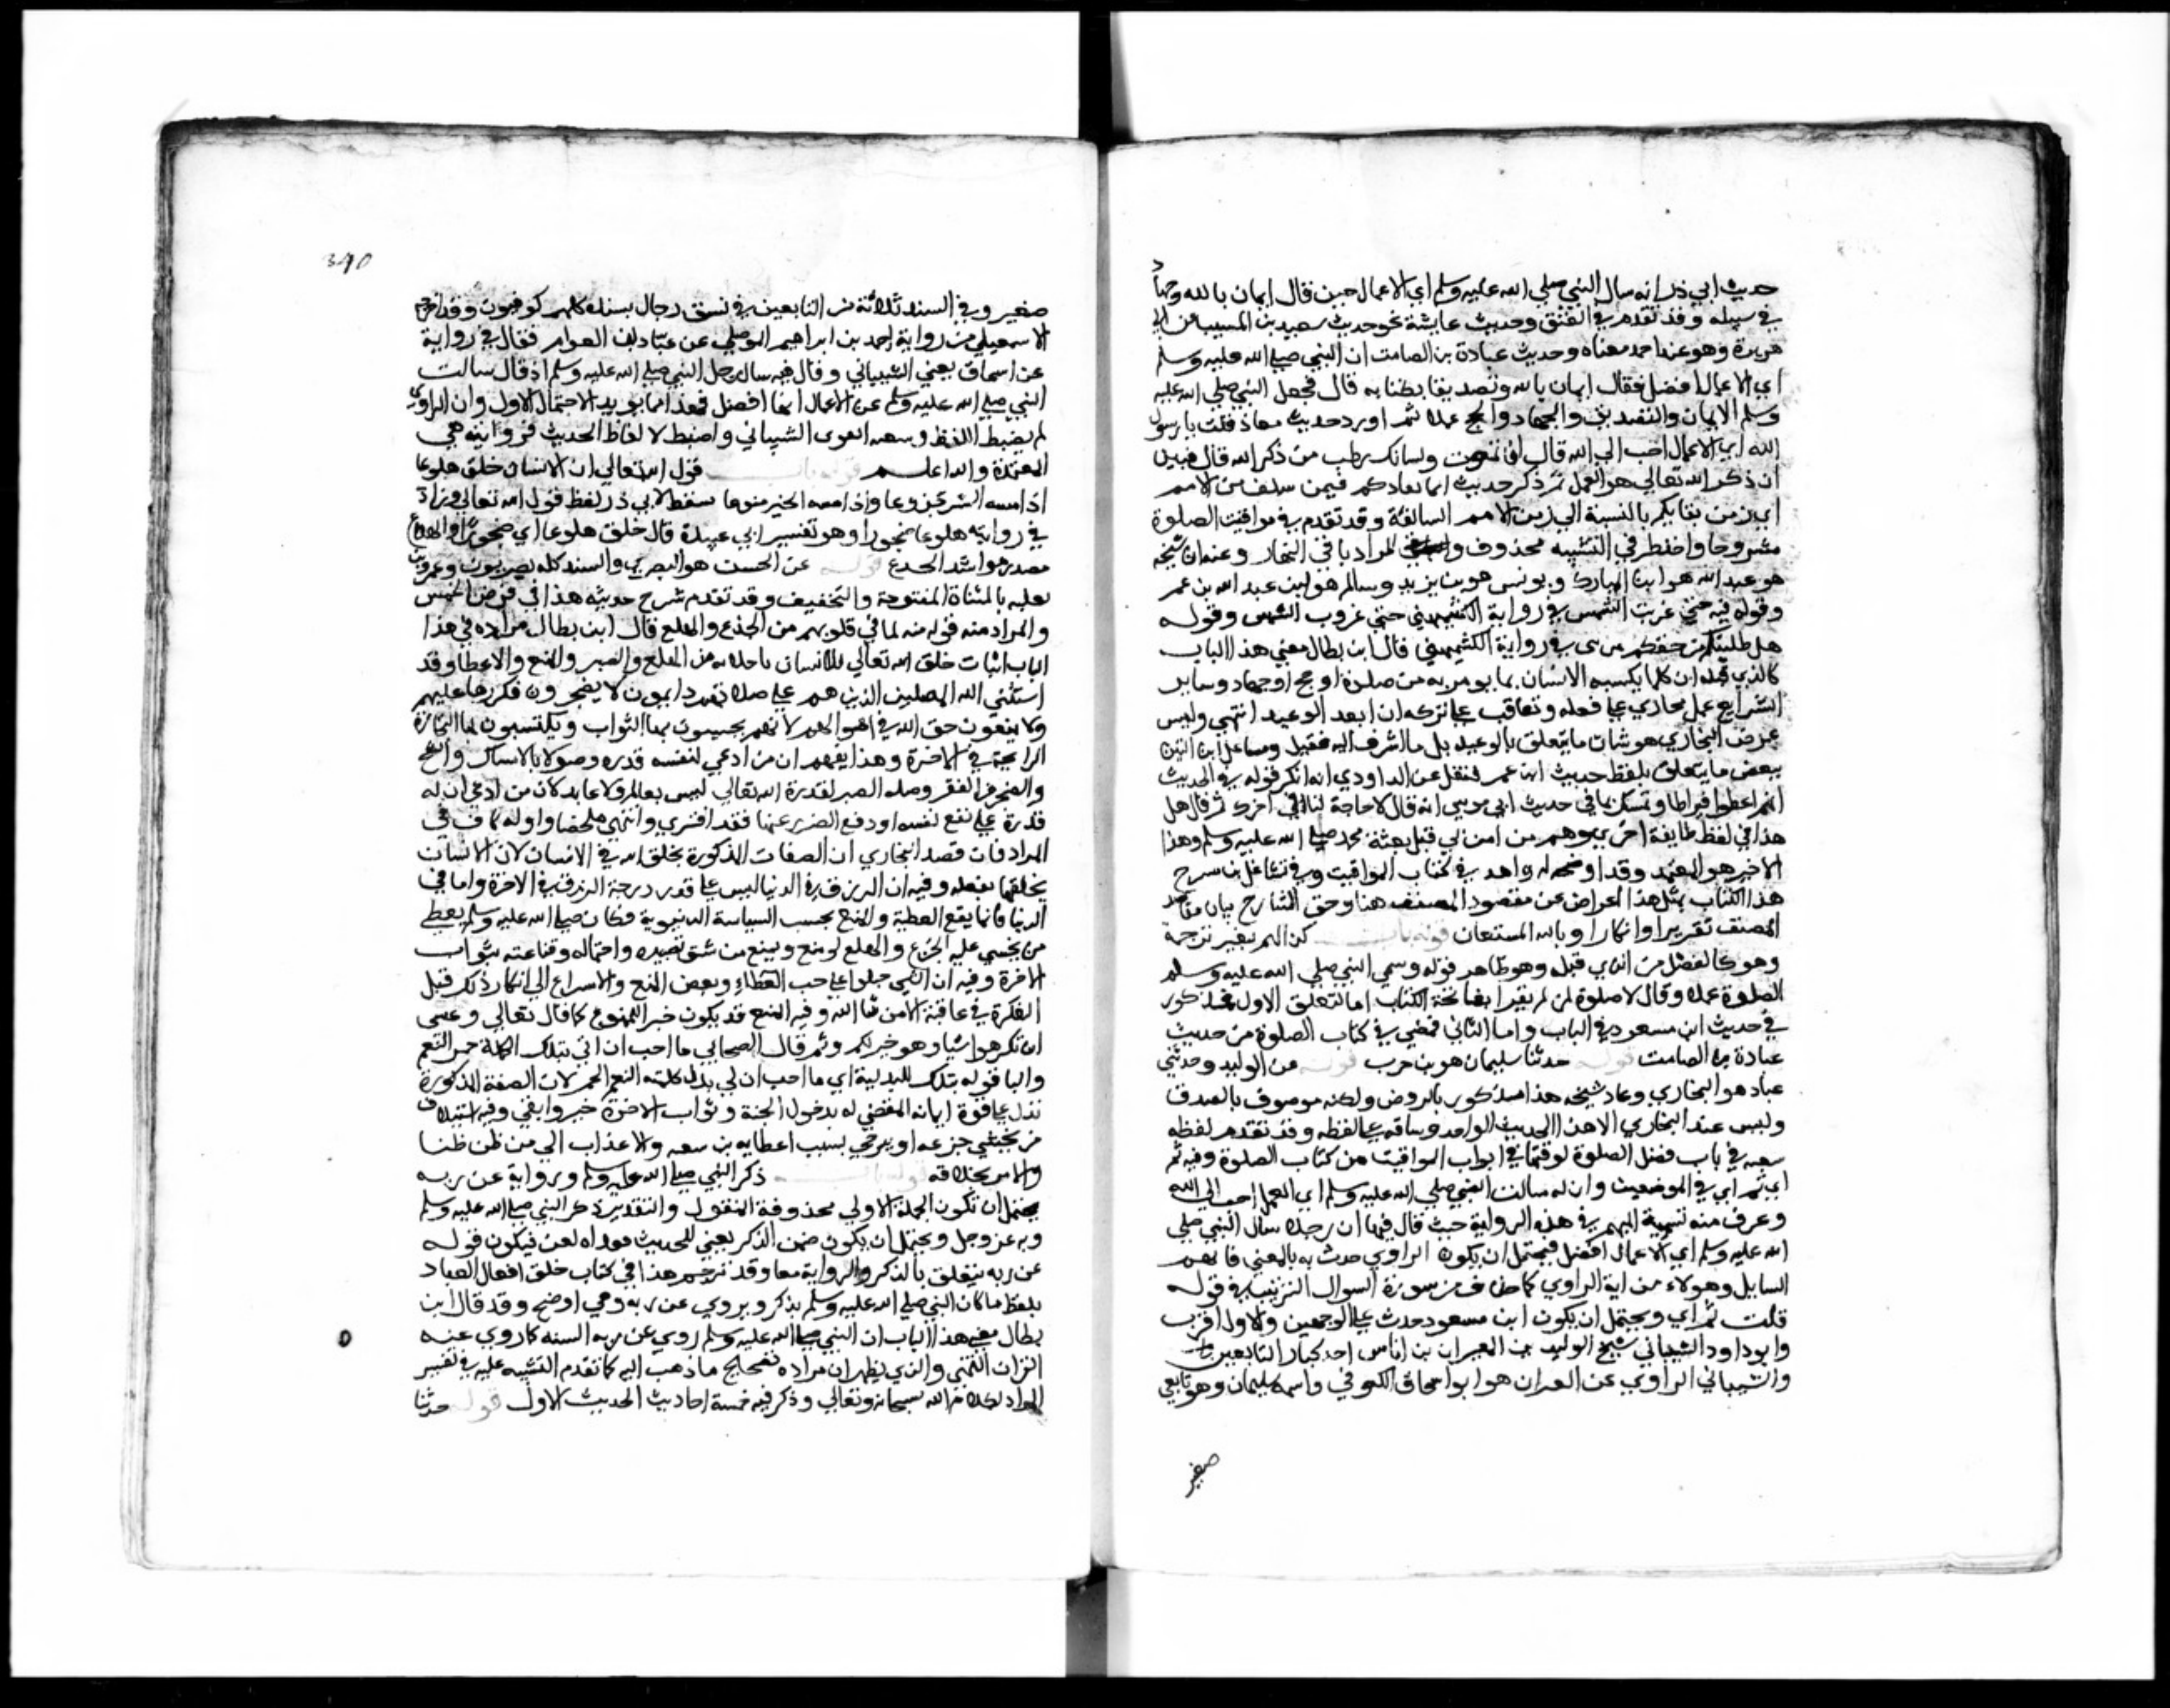 حديث ابي ذر انه سال النبي صلي الله عليه وسلم اي الاعمال حين قال ايمان بالله وجهاد
في سبيله وقد تقدم في العتق وحديث عايشة نحو حديث سعيد بن المسيب عن ابي
هريرة وهو عند احمد معناه وحديث عبادة بن الصامت ان النبي صلي الله عليه وسلم
اي الاعمال افضل فقال ايمان بالله وتصديق بكتابه قال فجعل النبي صلي الله عليه
وسلم الايمان والتصديق والجهاد والحج عملا ثم اورد حديث معاذ قلت يا رسول
الله اي الاعمال احب الي الله قال ان تموت ولسانك رطب من ذكر الله قال فبين
ان ذكر الله تعالي هو العمل ثم ذكر حديث انما بقاوكم فيمن سلف من الامم
اي زمن بقايكم بالنسبة الي زمن الامم السالفة وقد تقدم في مواقيت الصلوة
مشروحا واحد طرفي التشبيه محذوف والمراد باقي النهار وعبدان شيخه
هو عبد الله هو ابن المبارك ويونس هو بن يزيد وسالم هو ابن عبد الله بن عمر
وقوله فيه حتي غربت الشمس في رواية الكشميهني حتي غروب الشمس وقوله
هل ظلمتكم من حقكم من شي في رواية الكشميهني قال ابن بطال معني هذا الباب
كالذي قبله ان كلما يكسبه الانسان مما يومر به من صلوة او حج او جهاد وساير
الشرايع عمل يجازي علي فعله ويعاقب علي تركه ان انفذ الوعيد انتهي وليس
غرض البخاري هو بيان ما يتعلق بالوعيد بل ما اشرت اليه قبل وتشاغل ابن التين
ببعض ما يتعلق بلفظ حديث ابن عمر فنقل عن الداودي انه انكر قوله في الحديث
انهم اعطوا قيراطا وتمسك بما في حديث ابي موسي انه قال لا حاجة لنا في اجرك ثم قال لعل
هذا في لفظ طايفة اخري وهم من امن بنبي قبل بعثة محمد صلي الله عليه وسلم وهذا
الاخير هو المعتمد وقد اوضحته بشواهده في كتاب المواقيت وفي تشاغل من شرح
هذا الكتاب بمثل هذا اعراض عن مقصود المصنف هنا وحق الشارح بيان مقاصد
المصنف تقريرا وانكارا وبالله المستعان قوله باب كذا لهم بغير ترجمة
وهو كالفصل من الذي قبله وهو ظاهر قوله وسمي النبي صلي الله عليه وسلم
الصلوة عملا وقال لا صلوة لمن لم يقرا بفاتحة الكتاب اما التعلق الاول فمذكور
في حديث ابن مسعود في الباب واما الثاني فمضي في كتاب الصلوة من حديث
عبادة بن الصامت قوله حدثنا سليمان هو بن حرب قوله عن الوليد وحدثني
عباد هو البخاري وعباد شيخه هذا مذكور بالرفض ولكنه موصوف بالصدق
وليس عند البخاري الا هذا الحديث الواحد وساقه علي لفظه وقد تقدم لفظ
شعبة في باب فضل الصلوة لوقتها في ابواب المواقيت من كتاب الصلوة وفيه ثم
اي ثم اي في الموضعين وان له سالت النبي صلي الله عليه وسلم اي العمل احب الي الله
وعرف منه تسمية المبهم في هذه الرواية حيث قال فيها ان رجلا سال النبي صلي
الله عليه وسلم اي الاعمال افضل فيحتمل ان يكون الراوي حدث به بالمعني فابهم
السايل وهولاء من اية الراوي كما حذف من صورة السوال الترتيب في قوله
قلت ثم اي ويحتمل ان يكون ابن مسعود حدث علي الوجهين والاول اقرب
وابو داود الشيباني شيخ الوليد بن العيزار بن اياس احد كبار التابعين
والشيباني الراوي عن العيزار هو ابو اسحاق الكوفي واسمه سليمان وهو تابعي
صغير
340
صغير وفي السند ثلاثة من التابعين في نسق رجال سنده كلهم كوفيون وقد اخرجه
الاسمعيلي من رواية احمد بن ابراهيم الموصلي عن عباد بن العوام فقال في رواية
عن اسحاق يعني الشيباني وقال فيه سال رجل النبي صلي الله عليه وسلم اذ قال سالت
النبي صلي الله عليه وسلم عن الاعمال ايها افضل فهذا مما يويد الاحتمال الاول وان الراوي
لم يضبط اللفظ وشعبة اقوي الشيباني واضبط لالفاظ الحديث فروايته هي
المعتمدة والله اعلم قوله باب قول الله تعالي ان الانسان خلق هلوعا
اذا مسه الشر جزوعا واذا مسه الخير منوعا سقط لابي ذر لفظ قول الله تعالي وزاد
في روايته هلوعا ضجورا وهو تفسير ابي عبيدة قال خلق هلوعا اي ضجورا والهلاع
مصدر هو اشد الجذع قوله عن الحسن هو البصري والسند كله بصريون وعمرو بن
تغلب بالمثناة المفتوحة والتخفيف وقد تقدم شرح حديثه هذا في فرض الخمس
والمراد منه قوله فيه لما في قلوبهم من الجذع والهلع قال ابن بطال مراده في هذا
الباب اثبات خلق الله تعالي للانسان باخلاقه من الهلع والصبر والمنع والاعطا وقد
استثني الله المصلين الذين هم علي صلاتهم دايمون لا يضجرون فكررها عليهم
ولا يمنعون حق الله في اموالهم لانهم يحتسبون بها الثواب ويكتسبون بها التجارة
الرابحة في الاخرة وهذا يفهم ان من ادعي لنفسه قدرة وحولا بالامساك والشح
والضجر من الفقر وقلة الصبر لقدرة الله تعالي ليس بعالم ولا عابد لان من ادعي ان له
قدرة علي نفع نفسه او دفع الضر عنها فقد افتري وانتهي ملخصا واوله كاف في
المراد فان قصد البخاري ان الصفات المذكورة بخلق الله في الانسان لا ان الانسان
يخلقها بفعله وفيه ان الرزق في الدنيا ليس علي قدر درجة المرزوق في الاخرة واما في
الدنيا فانما يقع العطية والمنع بحسب السياسة الدنيوية فكان صلي الله عليه وسلم يعطي
من يخشي عليه الجزع والهلع لو منع ويمنع من يثق بصبره واحتماله وقناعته بثواب
الاخرة وفيه ان البشر جبلوا علي حب العطاء وبغض المنع والاسراع الي انكار ذلك قبل
الفكرة في عاقبته الا من شا الله وفيه المنع قد يكون خيرا للممنوع كما قال تعالي وعسي
ان تكرهوا شيا وهو خير لكم وثم قال الصحابي ما احب ان لي بتلك الكلمة حمر النعم
والبا في قوله بتلك للبدلية اي ما احب ان لي بدل كلمته النعم الحمر لان الصفة المذكورة
تدل علي قوة ايمانه المفضي له بدخول الجنة وثواب الاخرة خير وابقي وفيه استيلاف
من يخشي جزعه او يرجي بسبب اعطايه من تبعه والاعتذار الي من ظن ظنا
والامر بخلافه قوله باب ذكر النبي صلي الله عليه وسلم وروايته عن ربه
يحتمل ان تكون الجملة الاولي محذوفة المفعول والتقدير ذكر النبي صلي الله عليه وسلم
ربه عز وجل ويحتمل ان يكون ضمن الذكر يعني للحديث فعداه بعن فيكون قوله
عن ربه يتعلق بالذكر والرواية معا وقد ترجم هذا في كتاب خلق افعال العباد
بلفظ ما كان النبي صلي الله عليه وسلم يذكر ويروي عن ربه وهي اوضح وقد قال ابن
بطال معني هذا الباب ان النبي صلي الله عليه وسلم روي عن ربه السنة كما روي عنه
القران انتهي والذي يظهر ان مراده تصحيح ما ذهب اليه كما تقدم التنبيه عليه في تفسير
المراد بكلام الله سبحانه وتعالي وذكر فيه خمسة احاديث الحديث الاول قوله حدثنا